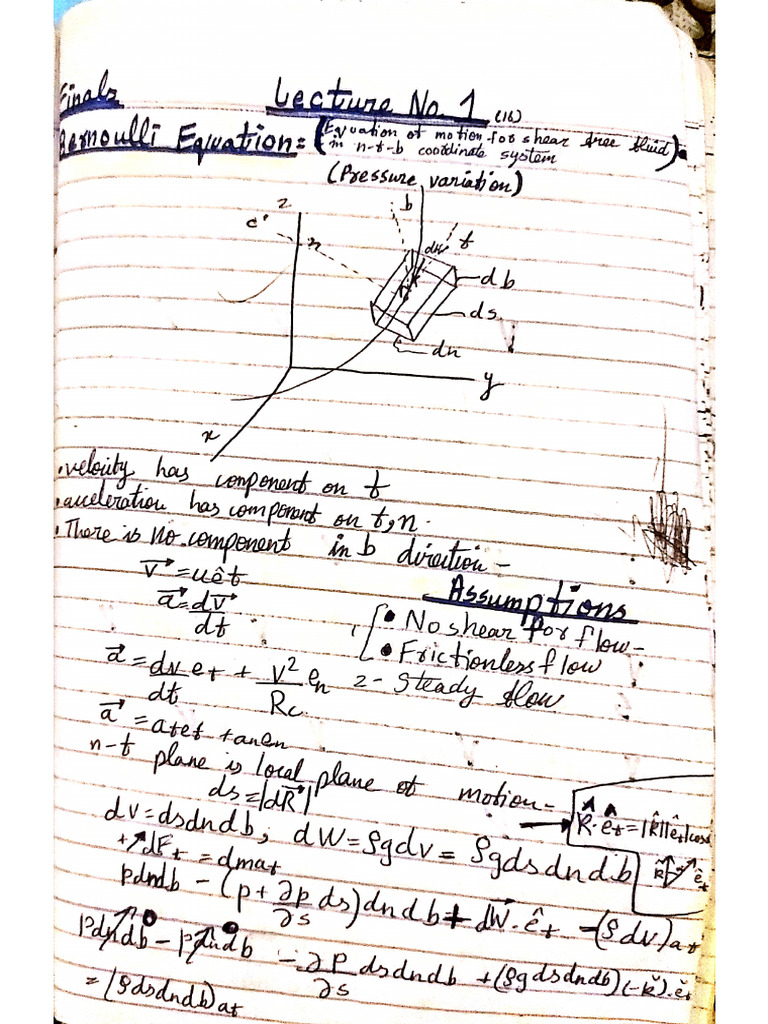 Finals
Lecture No. 1 (16)
Bernoulli Equation = (Equation of motion for shear free fluid
in n-t-b coordinate system).
(Pressure variation)
z
b
c'
n
dn
t
db
ds
dn
y
x
• velocity has component on t
• acceleration has component on t, n.
• There is no component in b direction -
v⃗ = u ê t
a⃗ = dv⃗/dt
Assumptions
1, { • No shear for flow -
• Frictionless flow
a⃗ = dv/dt e_t + v²/R_c e_n
2- Steady flow
a⃗ = a_t e_t + a_n e_n
n-t plane is local plane of motion -
ds = |dR⃗|
K̂ · ê_t = |k̂||ê_t| cos
k̂ ê_t
dv = ds dn db, dW = ρg dv = ρg ds dn db
+↗ dF_t = dm a_t
pdndb - (p + ∂p/∂s ds) dn db + dW⃗ · ê_t = (ρ dv) a_t
pdndb - pdndb - ∂P/∂s ds dn db + (ρg ds dn db)(-k̂) · ê_t
= (ρ ds dn db) a_t